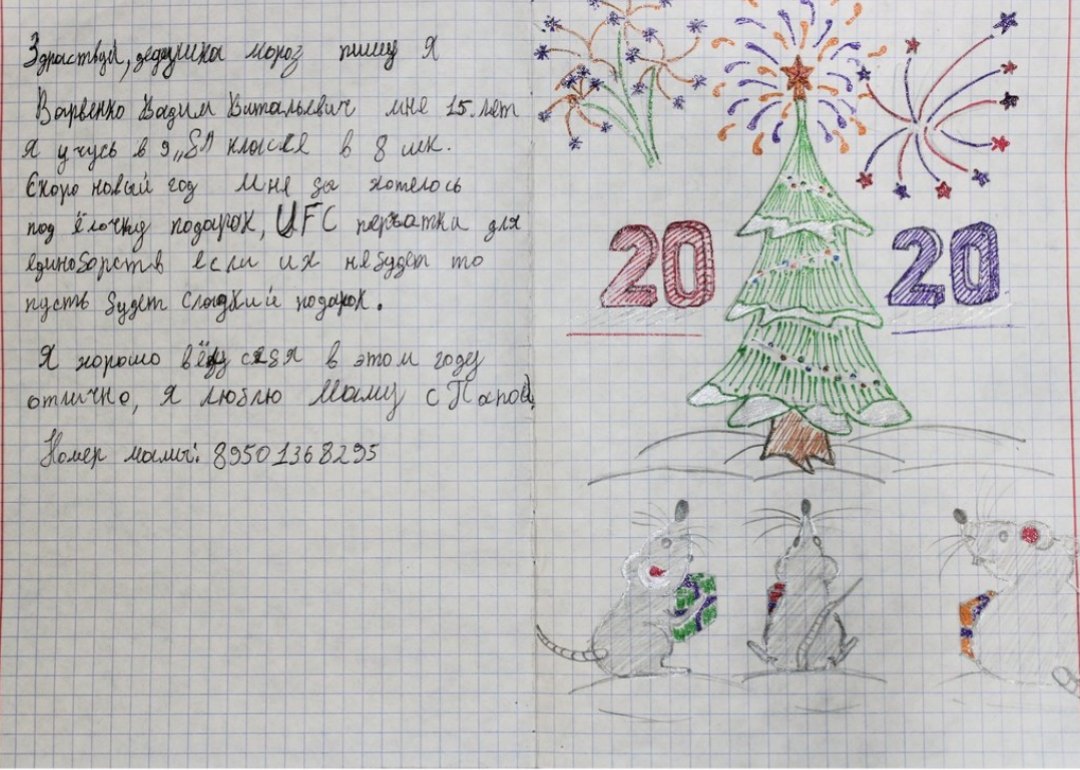 Здраствуй, дедушка мороз пишу Я
Варвенко Вадим Витальевич мне 15 лет
Я учусь в 9 „
классе в 8 шк.
Скоро новый год Мне бы хотелось
под ёлочку подарок, UFC перчатки для
единоборств если их небудет то
пусть будет сладкий подарок.
Я хорошо вёду себя в этом году
отлично, Я люблю Маму с Папой,
Номер мамы: 89501368295
20 20